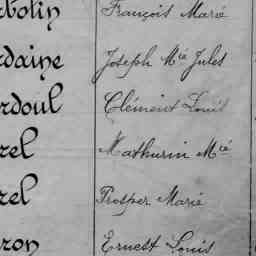 botin François Marie
rdaine Joseph Mie Jules
rdoul Clément Louis
rel Mathurin Mie
rel Prosper Marie
ron Ernest Louis